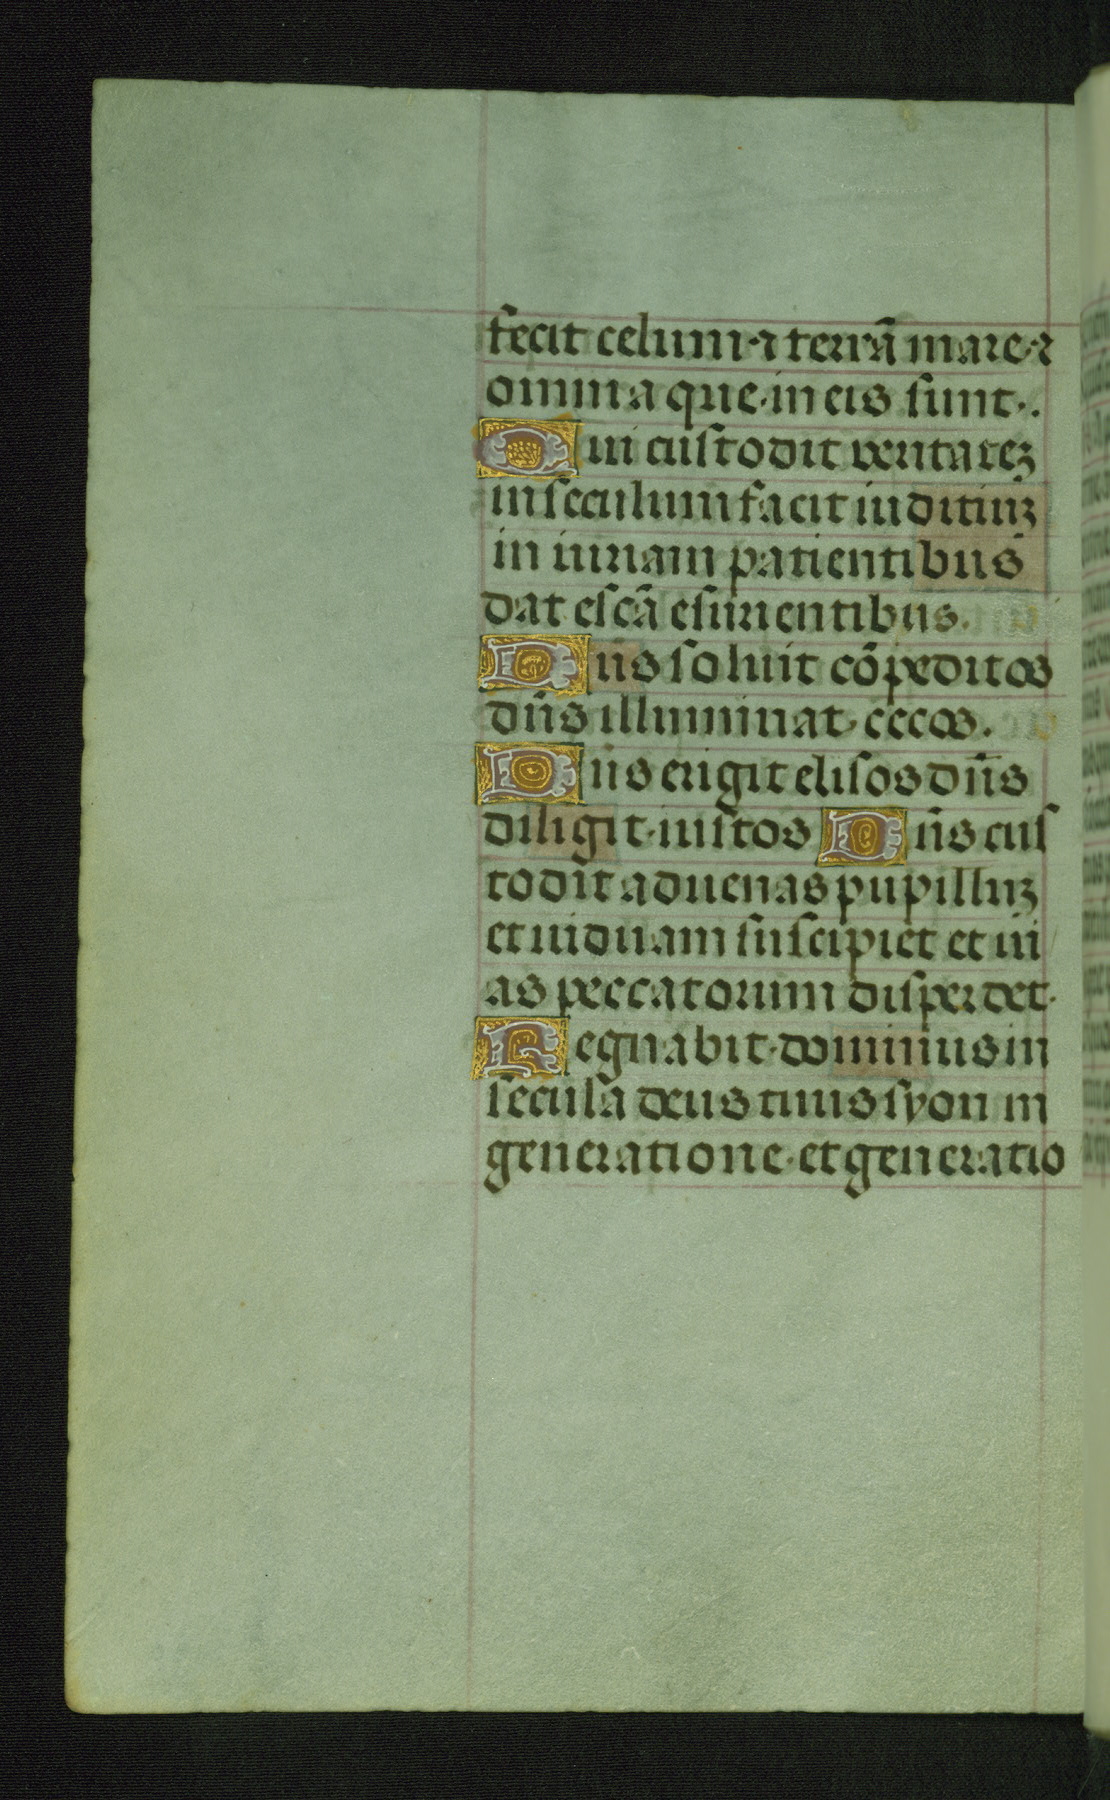 fecit celum·⁊ terrã mare·⁊
omnia que·in eis sunt·.
Qui custodit veritatez
in seculum facit iuditiuz
in iuriam patientibus
dat escã esurientibus.
Dñs soluit cõpeditos
dñs illuminat·cecos.
Dñs erigit elisos dñs
diligit·iustos Dñs cus
todit aduenas pupilluz
et uiduam suscipiet et ui
as peccatorum disperdet·
Regnabit·dominus in
secula deus tuus syon in
generatione·et generatio